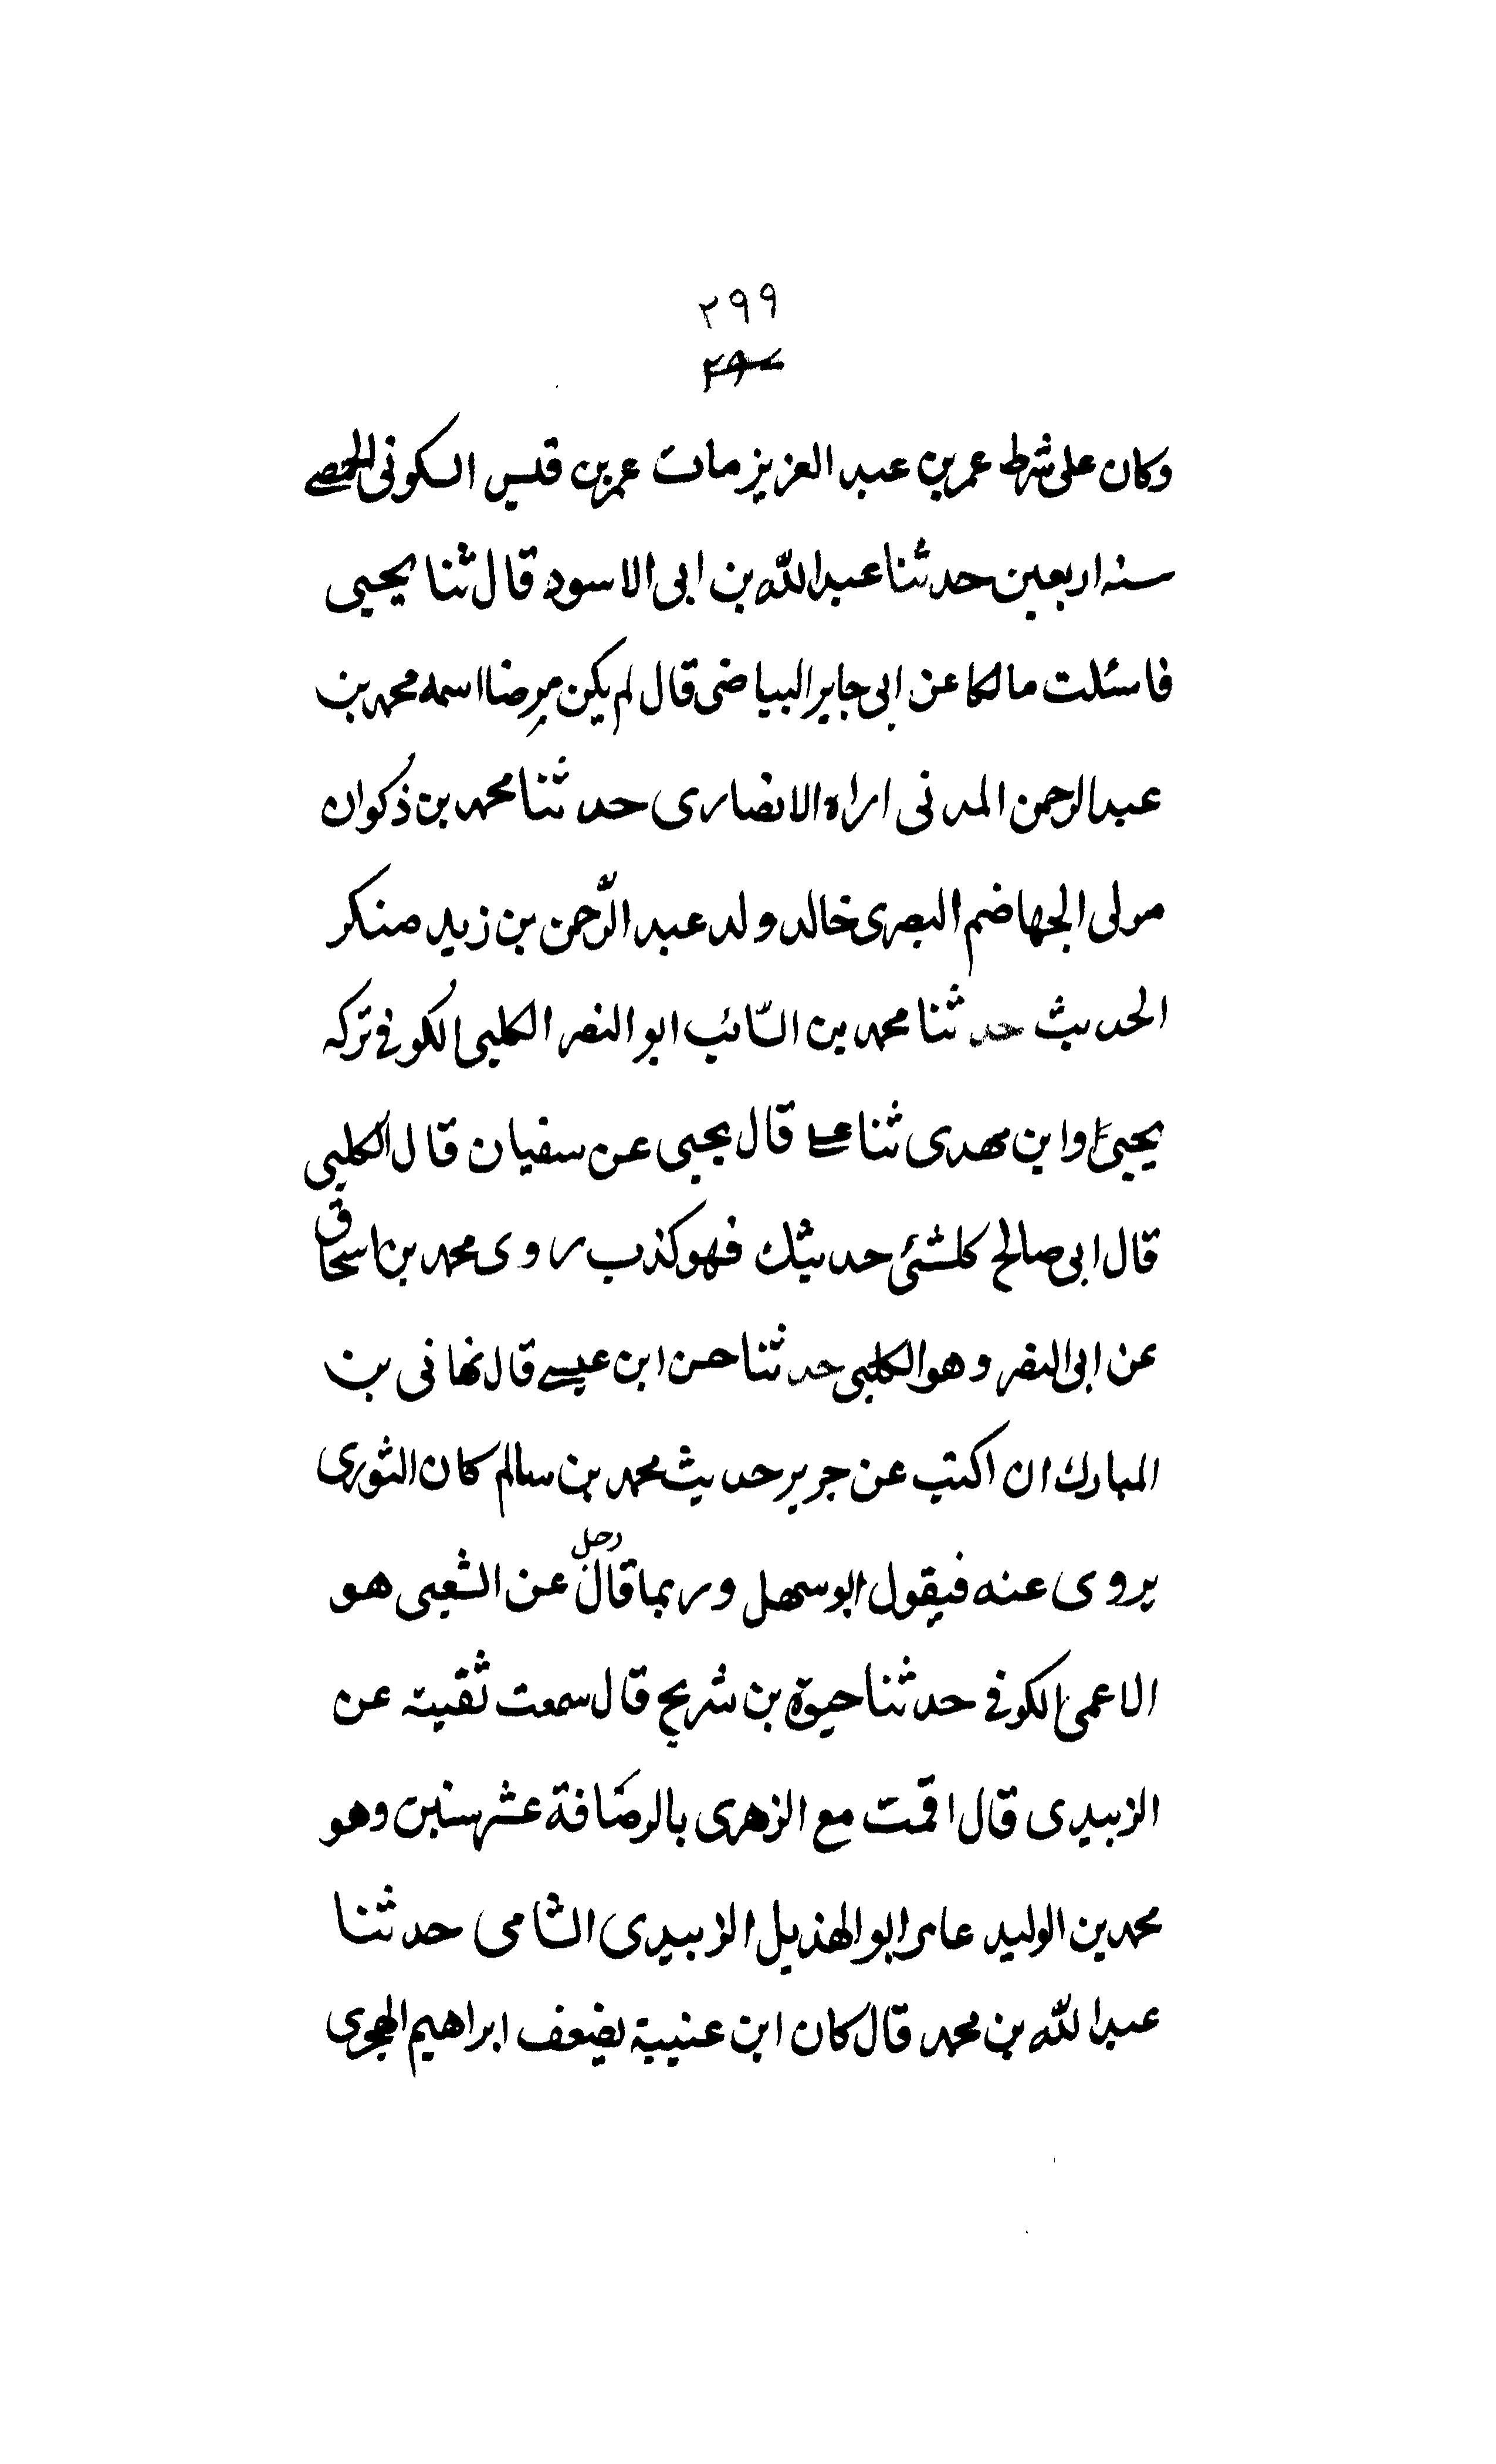 ٢٩٩
وكان على شرط عمر بن عبد العزيز مات عمر بن قيس السكونى الحمصے
سنه اربعين حدثنا عبد الله بن ابى الاسود قال ثنا يحيى
فاسئلت مالكا عن ابى جابر البياضى قال لم يكن مرضا اسمه محمد بن
عبد الرحمن المدنى اراه الانصارى حدثنا محمد بن ذكوان
مولى الجهاضم البصرى خالد ولد عبد الرّحمن بن زيد منكر
الحديث حدثنا محمد بن السّائب ابو النضر الكلبى الكوفے تركه
يحيىٰ وابن مهدى ثنا علے قال يحيى عن سفيان قال الكلبى
قال ابى صالح كلشئى حديثك فهو كذب روى محمد بن اسحاق
عن ابى النضر وهو الكلبى حدثنا حسن ابن عيسے قال نهانى بن
المبارك ان اكتب عن جرير حديث محمد بن سالم كان الثورى
يروى عنه فيقول ابو سهل وربما قال رجل عن الشعبى هو
الاعمى الكوفے حدثنا حيوة بن شريح قال سمعت ثقيته عن
الزبيدى قال اقمت مع الزهرى بالرصافة عشر سنين وهو
محمد بن الوليد عامر ابو الهذيل الزبيدى الشامى حدثنا
عبد الله بن محمد قال كان ابن عنيية يضعف ابراهيم الهجرى